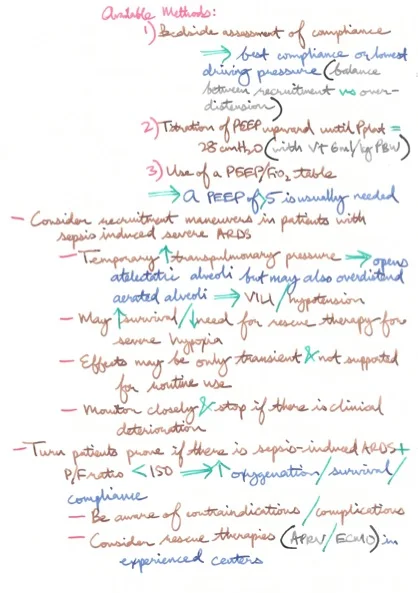 Available Methods:
1) Bedside assessment of compliance
⇒ best compliance or lowest
driving pressure (balance
between recruitment vs over-
distension)
2) Titration of PEEP upward until Pplat =
28 cmH2O (with Vt 6ml/kg PBW)
3) Use of a PEEP/FiO2 table
⇒ A PEEP of >5 is usually needed
- Consider recruitment maneuvers in patients with
sepsis induced severe ARDS
- Temporary ↑ transpulmonary pressure ⇒ opens
atelectatic alveoli but may also overdistend
aerated alveoli → VILI/hypotension
- May ↑survival/↓need for rescue therapy for
severe hypoxia
- Effects may be only transient & not supported
for routine use
- Monitor closely & stop if there is clinical
deterioration
- Turn patients prone if there is sepsis-induced ARDS +
P/F ratio < 150 ⇒ ↑ oxygenation/survival/
compliance
- Be aware of contraindications/complications
- Consider rescue therapies (APRV/ECMO) in
experienced centers